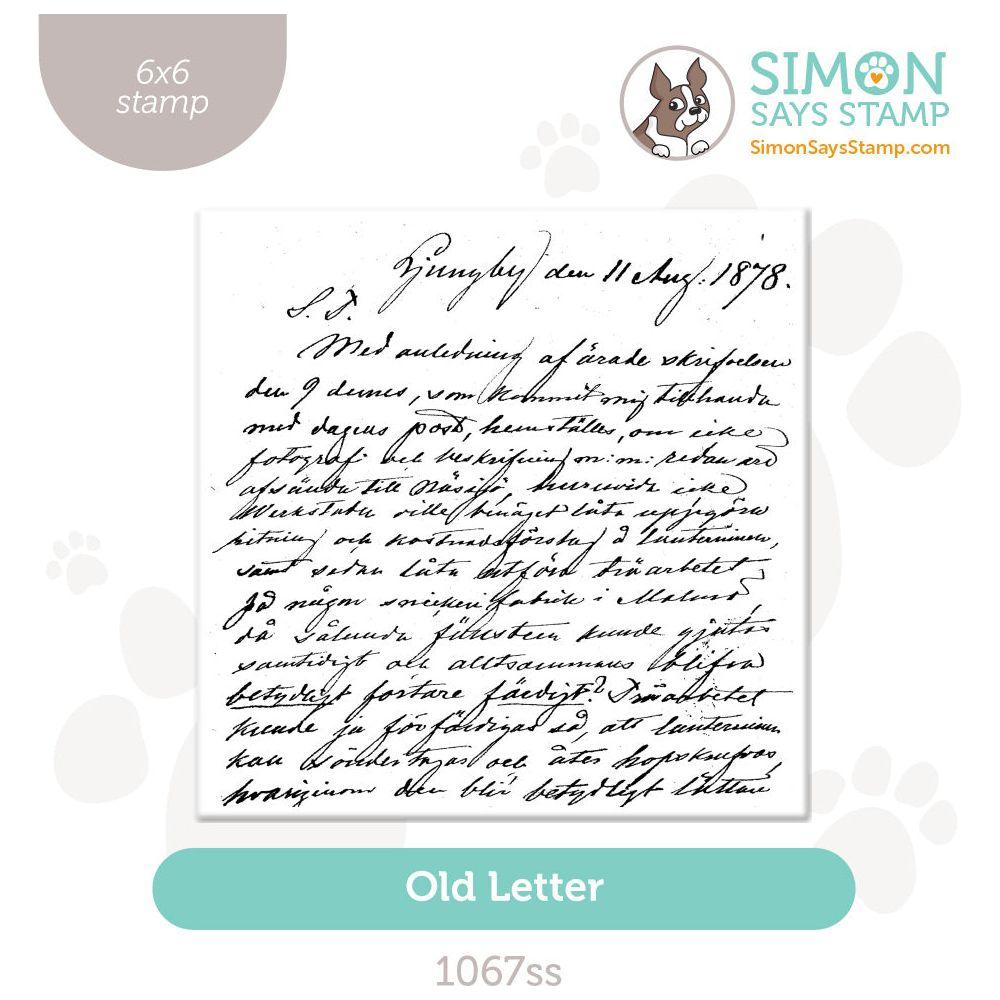 6x6
stamp
SIMON
SAYS STAMP
SimonSaysStamp.com
Ljungby den 11 Aug. 1878.
S. T.
Med anledning af ärade skrifvelsen
den 9 dennes, som kommit mig tillhanda
med dagens post, hemställes, om icke
fotografi och beskrifning m: m: redan äro
afsända till Näsijö, huruvida icke
Werkstaden ville benäget låta uppgöra
ritning och kostnadsförslag å lanterninen,
samt sedan låta utföra träarbetet
på någon snickeri fabrik i Malmö,
då sålunda fönstren kunde gjutas
samtidigt och alltsammans blifva
betydligt fortare färdigt? Träarbetet
kunde ju förfärdigas så, att lanterninen
kan söndertagas och åter hopskrufvas,
hvarigenom den blir betydligt lättare
Old Letter
1067ss